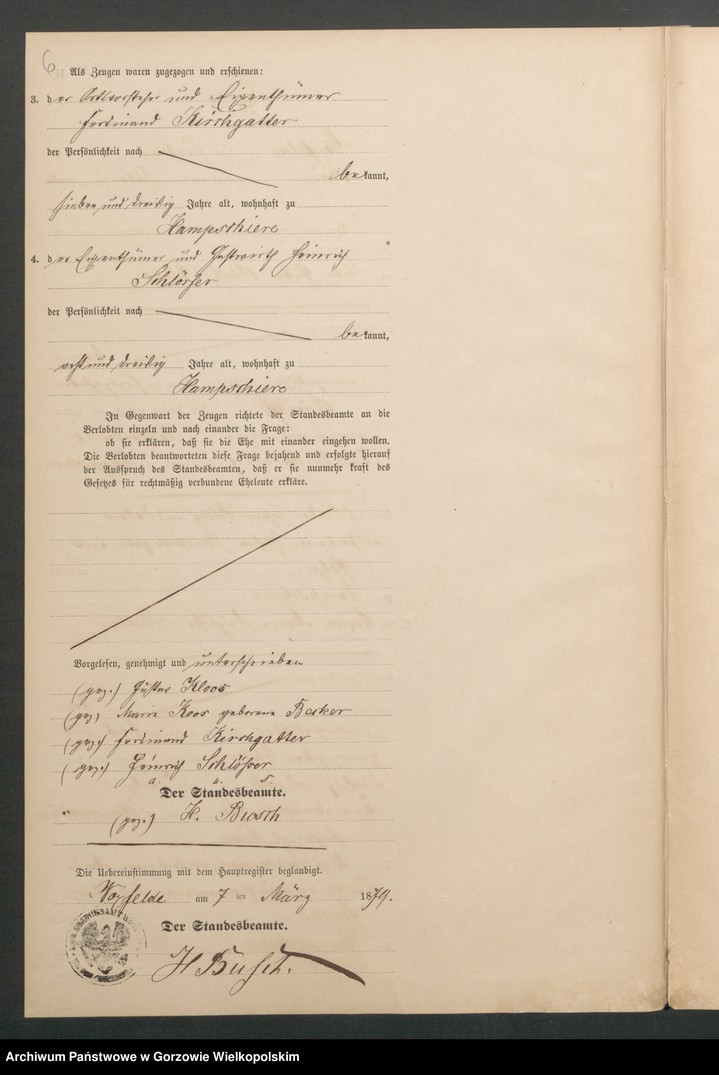 6
Als Zeugen waren zugezogen und erschienen:
3. der Ortsvorsteher und Eigenthümer
Ferdinand Kirchgatter
der Persönlichkeit nach
bekannt,
sieben und dreißig Jahre alt, wohnhaft zu
Hampschiere
4. der Eigenthümer und Gastwirth Heinrich
Schlösser
der Persönlichkeit nach
bekannt,
acht und dreißig Jahre alt, wohnhaft zu
Hampschiere
In Gegenwart der Zeugen richtete der Standesbeamte an die
Verlobten einzeln und nach einander die Frage:
ob sie erklären, daß sie die Ehe mit einander eingehen wollen.
Die Verlobten beantworteten diese Frage bejahend und erfolgte hierauf
der Ausspruch des Standesbeamten, daß er sie nunmehr kraft des
Gesetzes für rechtmäßig verbundene Eheleute erkläre.
Vorgelesen, genehmigt und unterschrieben
(gez.) Gustav Kloos
(gez) Marie Koos geborene Becker
(gez.) Ferdinand Kirchgatter
(gez.) Heinrich Schlösser
a. u. s.
Der Standesbeamte.
(gez.) H. Busch
Die Uebereinstimmung mit dem Hauptregister beglaubigt.
am 7 ten März 1879.
Der Standesbeamte.
H Busch.
Archiwum Państwowe w Gorzowie Wielkopolskim